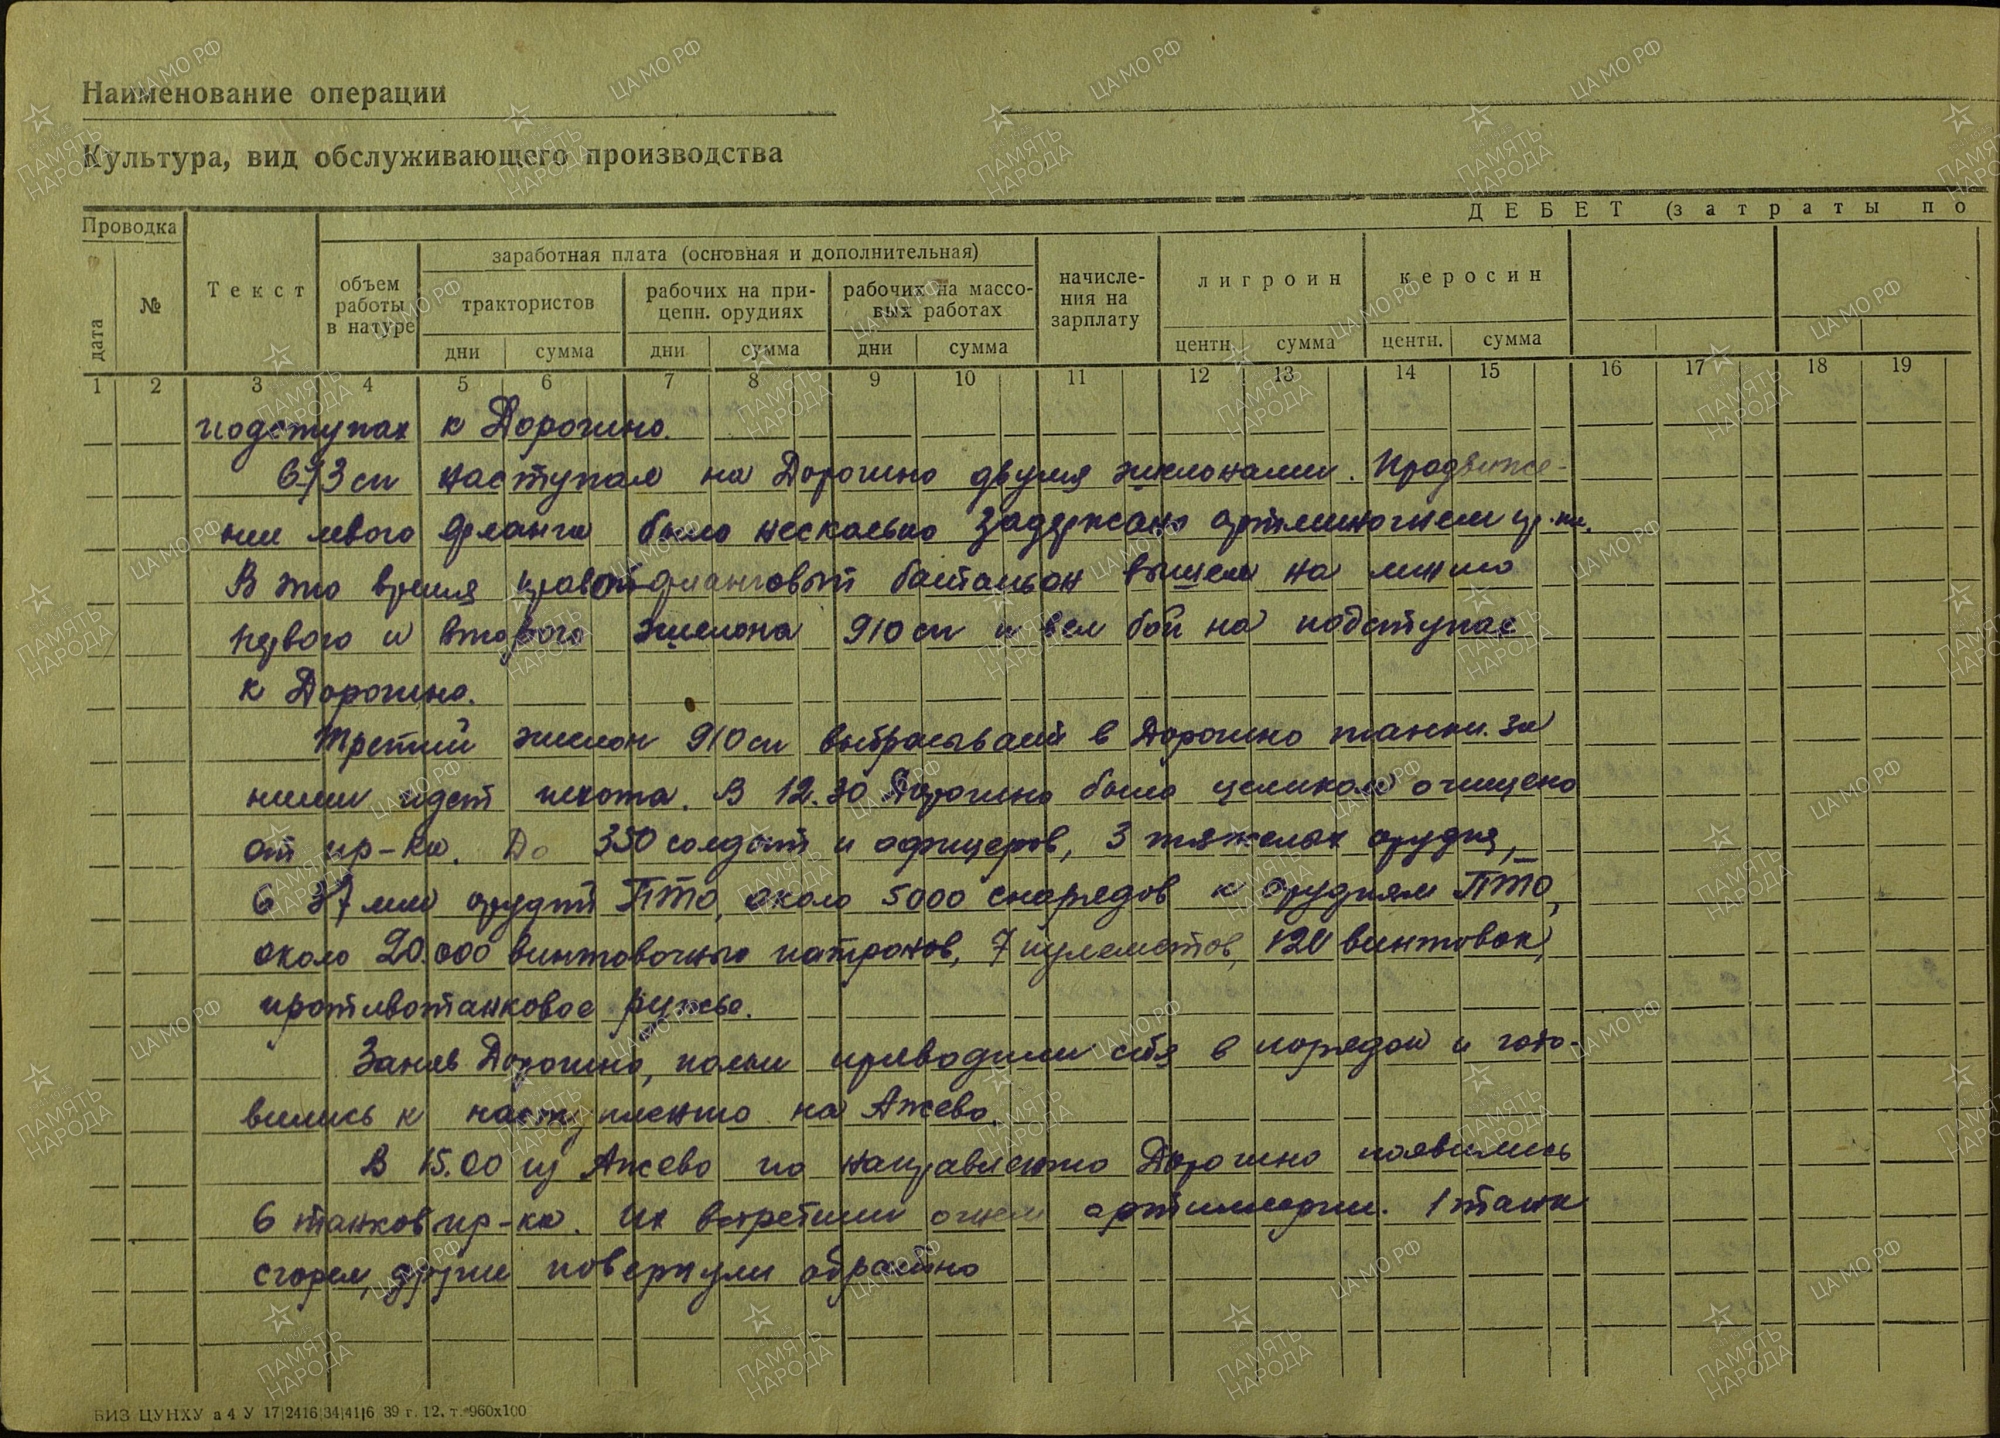 Наименование операции
Культура, вид обслуживающего производства
ДЕБЕТ (затраты по
Проводка
дата
№
Текст
объем работы в натуре
заработная плата (основная и дополнительная)
трактористов
рабочих на прицепн. орудиях
рабочих на массовых работах
начисления на зарплату
лигроин
керосин
дни сумма дни сумма дни сумма центн. сумма центн. сумма
1 2 3 4 5 6 7 8 9 10 11 12 13 14 15 16 17 18 19
подступах к Дорошино.
673 сп наступал на Дорошино двумя эшелонами. Продвиже-
ние левого фланга было несколько задержано артминогнем пр-ка.
В это время правофланговый батальон вышел на линию
первого и второго эшелона 910 сп и вел бой на подступах
к Дорошино.
Третий эшелон 910 сп выбрасывает в Дорошино танки. За
ними идет пехота. В 12.30 Дорошино было целиком очищено
от пр-ка. До 350 солдат и офицеров, 3 тяжелых орудия,
6 37 мм орудий ПТО, около 5000 снарядов к орудиям ПТО,
около 20.000 винтовочных патронов, 7 пулеметов, 120 винтовок,
противотанковое ружье.
Заняв Дорошино, полки приводили себя в порядок и гото-
вились к наступлению на Ажево.
В 15.00 из Ажево по направлению Дорошино появились
6 танков пр-ка. Их встретили огнем артиллерии. 1 танк
сгорел, другие повернули обратно
БИЗ ЦУНХУ а 4 У 17|2416|34|41|6 39 г. 12. т. 960х100
ПАМЯТЬ НАРОДА
ЦАМО РФ